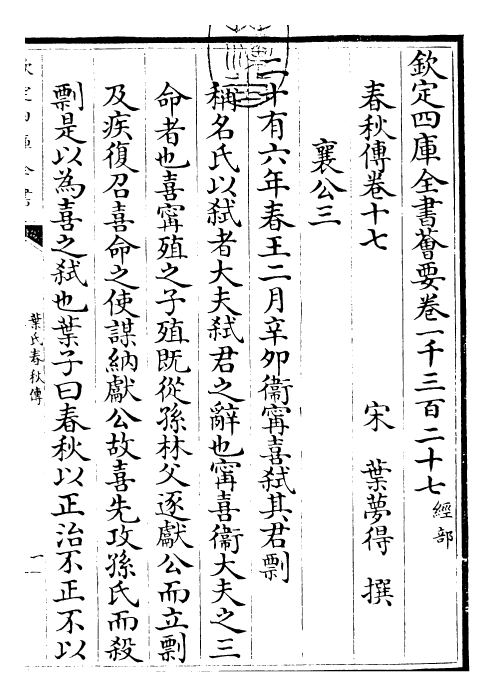 欽定四庫全書薈要卷一千三百二十七經部
春秋傳卷十七
宋 葉夢得 撰
襄公三
二十有六年春王二月辛卯衞甯喜弑其君剽
稱名氏以弑者大夫弑君之辭也甯喜衞大夫之三
命者也喜甯殖之子殖既從孫林父逐獻公而立剽
及疾復召喜命之使謀納獻公故喜先攻孫氏而殺
剽是以為喜之弑也葉子曰春秋以正治不正不以
欽定四庫全書
葉氏春秋傳
一